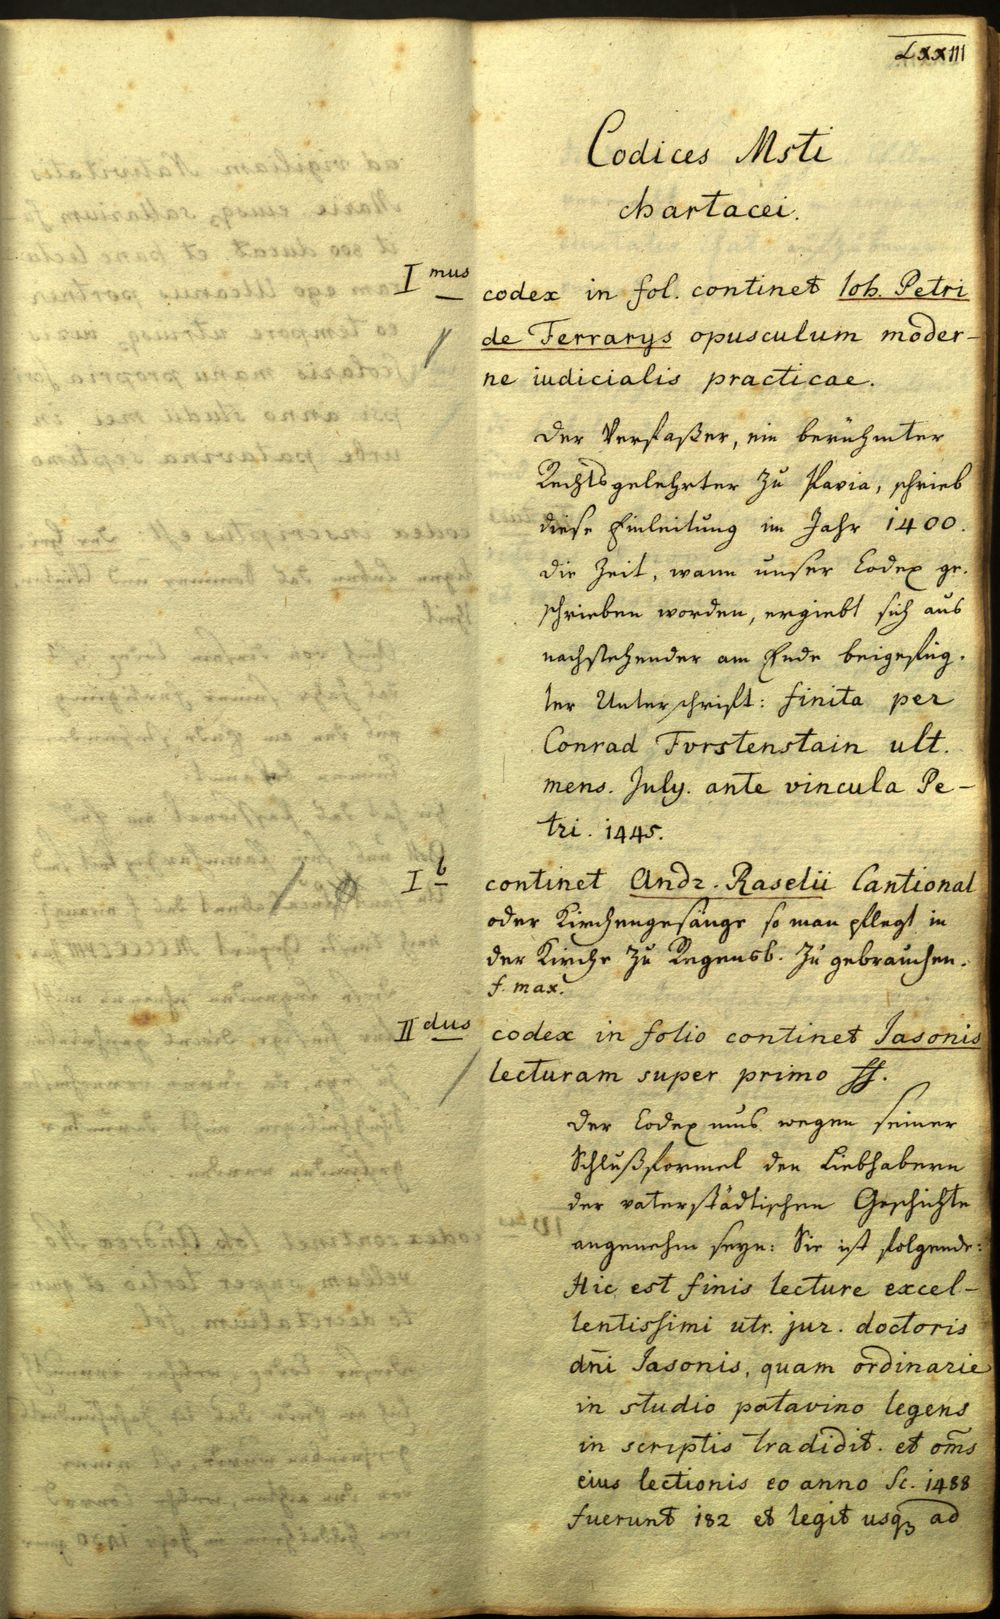 LXXIII
Codices Msti
chartacei.
I mus codex in fol. continet Ioh. Petri
de Ferrarys opusculum moder-
ne iudicialis practicae.
Der Verfaßer, ein berühmter
Rechtsgelehrter zu Pavia, schrieb
diese Einleitung im Jahr 1400.
Die Zeit, wann unser Codex ge-
schrieben worden, ergiebt sich aus
nachstehender am Ende beigefüg-
ter Unterschrift: finita per
Conrad Fvrstenstain ult.
mens. July. ante vincula Pe-
tri. 1445.
I b continet Andr. Raselii Cantional
oder Kirchengesänge so man pflegt in
der Kirche zu Regensb. zu gebrauchen.
f. max.
II dus codex in folio continet Iasonis
lecturam super primo ff.
Der Codex mus wegen seiner
Schlußformel den Liebhabern
der vaterstädtischen Geschichte
angenehm seyn: Sie ist folgende:
Hic est finis lecture excel-
lentissimi utr. jur. doctoris
dni Iasonis, quam ordinarie
in studio patavino legens
in scriptis tradidit. et oms
eius lectionis eo anno sc. 1488
fuerunt 182 et legit usqꝫ ad